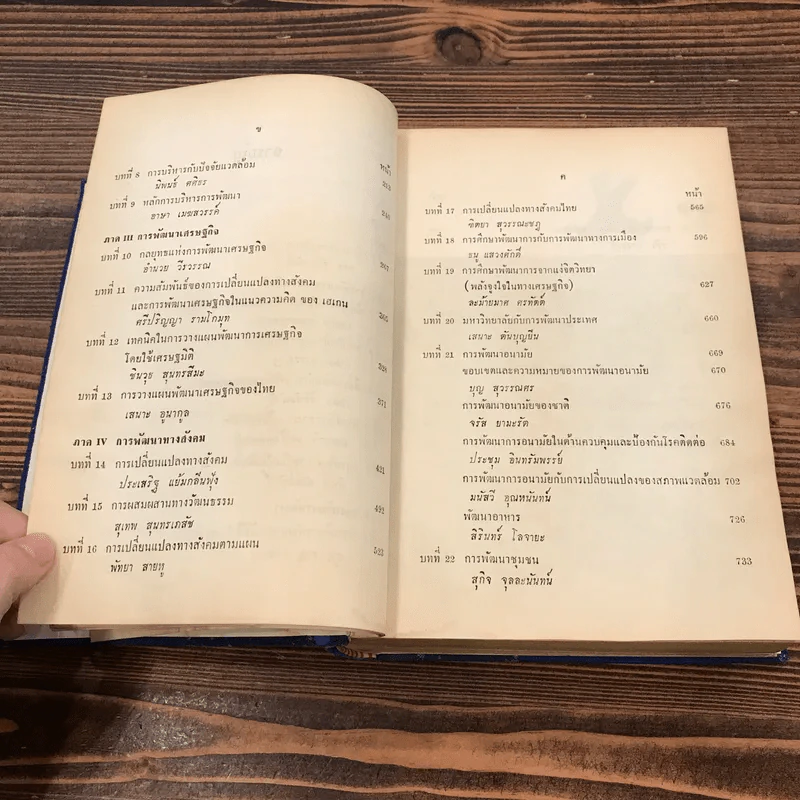 ข
หน้า
บทที่ 8 การบริหารกับปัจจัยแวดล้อม
นิพนธ์ ศศิธร
บทที่ 9 หลักการบริหารการพัฒนา
อาษา เมฆสวรรค์
ภาค III การพัฒนาเศรษฐกิจ
บทที่ 10 กลยุทธแห่งการพัฒนาเศรษฐกิจ
อำนวย วีรวรรณ
บทที่ 11 ความสัมพันธ์ของการเปลี่ยนแปลงทางสังคม
และการพัฒนาเศรษฐกิจในแนวความคิด ของ เฮเกน
ศรีปริญญา รามโกมุท
บทที่ 12 เทคนิคในการวางแผนพัฒนาการเศรษฐกิจ
โดยใช้เศรษฐมิติ
ชินวุธ สุนทรสีมะ
บทที่ 13 การวางแผนพัฒนาเศรษฐกิจของไทย 371
เสนาะ อูนากูล
ภาค IV การพัฒนาทางสังคม
บทที่ 14 การเปลี่ยนแปลงทางสังคม 421
ประเสริฐ แย้มกลิ่นฟุ้ง
บทที่ 15 การผสมผสานทางวัฒนธรรม 492
สุเทพ สุนทรเภสัช
บทที่ 16 การเปลี่ยนแปลงทางสังคมตามแผน 523
พัทยา สายหู
ค
หน้า
บทที่ 17 การเปลี่ยนแปลงทางสังคมไทย 565
ฑิตยา สุวรรณะชฎ
บทที่ 18 การศึกษาพัฒนาการกับการพัฒนาทางการเมือง 596
ธนู แสวงศักดิ์
บทที่ 19 การศึกษาพัฒนาการจากแง่จิตวิทยา
(พลังจูงใจในทางเศรษฐกิจ) 627
ละม้ายมาศ ศรทัตต์
บทที่ 20 มหาวิทยาลัยกับการพัฒนาประเทศ 660
เสนาะ ตันบุญยืน
บทที่ 21 การพัฒนาอนามัย 669
ขอบเขตและความหมายของการพัฒนาอนามัย 670
บุญ สุวรรณศร
การพัฒนาอนามัยของชาติ 676
จรัส ยามะรัต
การพัฒนาการอนามัยในด้านควบคุมและป้องกันโรคติดต่อ 684
ประชุม อินทรัมพรรย์
การพัฒนาการอนามัยกับการเปลี่ยนแปลงของสภาพแวดล้อม 702
มนัสวี อุณหนันทน์
พัฒนาอาหาร 726
สิรินทร์ โลจายะ
บทที่ 22 การพัฒนาชุมชน 733
สุกิจ จุลละนันทน์